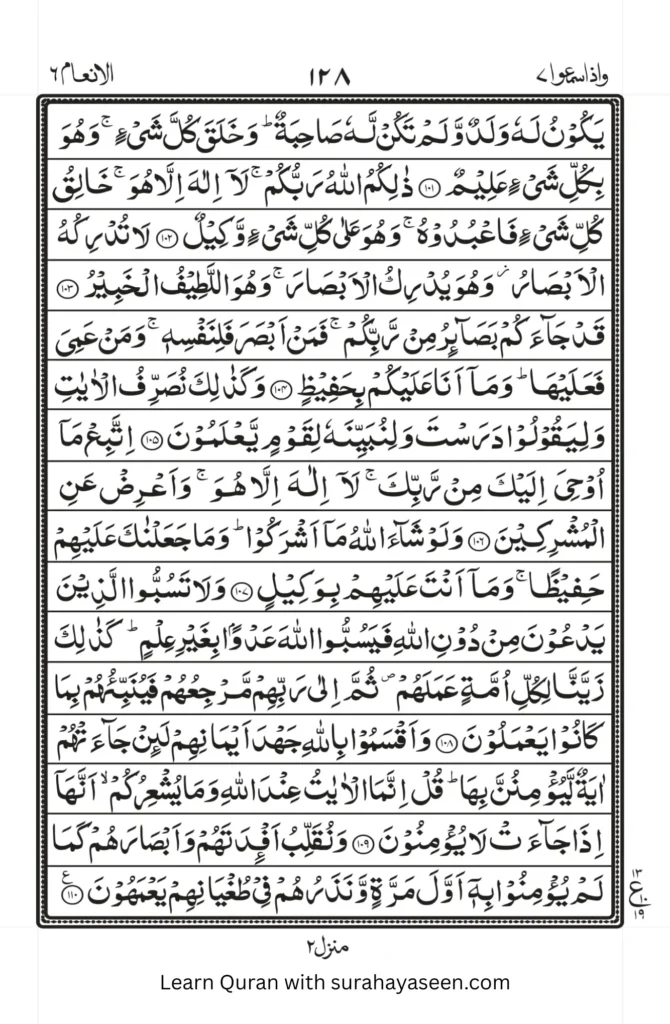 واذاسمعوا ٧ ١٢٨ الانعام ٦
يَكُوۡنُ لَهٗ وَلَدٌ وَّلَمۡ تَكُنۡ لَّهٗ صَاحِبَةٌ ؕ وَخَلَقَ كُلَّ شَىۡءٍ ۚ وَهُوَ
بِكُلِّ شَىۡءٍ عَلِيۡمٌ ﴿۱۰۱﴾ ذٰلِكُمُ اللّٰهُ رَبُّكُمۡ ۚ لَاۤ اِلٰهَ اِلَّا هُوَ ۚ خَالِقُ
كُلِّ شَىۡءٍ فَاعۡبُدُوۡهُ ۚ وَهُوَ عَلٰى كُلِّ شَىۡءٍ وَّكِيۡلٌ ﴿۱۰۲﴾ لَا تُدۡرِكُهُ
الۡاَبۡصَارُ ۫ وَهُوَ يُدۡرِكُ الۡاَبۡصَارَ ۚ وَهُوَ اللَّطِيۡفُ الۡخَبِيۡرُ ﴿۱۰۳﴾
قَدۡ جَآءَكُمۡ بَصَآٮِٕرُ مِنۡ رَّبِّكُمۡ ۚ فَمَنۡ اَبۡصَرَ فَلِنَفۡسِهٖ ۚ وَمَنۡ عَمِىَ
فَعَلَيۡهَا ؕ وَمَاۤ اَنَا عَلَيۡكُمۡ بِحَفِيۡظٍ ﴿۱۰۴﴾ وَكَذٰلِكَ نُصَرِّفُ الۡاٰيٰتِ
وَلِيَقُوۡلُوۡا دَرَسۡتَ وَلِنُبَيِّنَهٗ لِقَوۡمٍ يَّعۡلَمُوۡنَ ﴿۱۰۵﴾ اِتَّبِعۡ مَاۤ
اُوۡحِىَ اِلَيۡكَ مِنۡ رَّبِّكَ ۚ لَاۤ اِلٰهَ اِلَّا هُوَ ۚ وَاَعۡرِضۡ عَنِ
الۡمُشۡرِكِيۡنَ ﴿۱۰۶﴾ وَلَوۡ شَآءَ اللّٰهُ مَاۤ اَشۡرَكُوۡا ؕ وَمَا جَعَلۡنٰكَ عَلَيۡهِمۡ
حَفِيۡظًا ۚ وَمَاۤ اَنۡتَ عَلَيۡهِمۡ بِوَكِيۡلٍ ﴿۱۰۷﴾ وَلَا تَسُبُّوا الَّذِيۡنَ
يَدۡعُوۡنَ مِنۡ دُوۡنِ اللّٰهِ فَيَسُبُّوا اللّٰهَ عَدۡوًۢا بِغَيۡرِ عِلۡمٍ ؕ كَذٰلِكَ
زَيَّنَّا لِكُلِّ اُمَّةٍ عَمَلَهُمۡ ۪ ثُمَّ اِلٰى رَبِّهِمۡ مَّرۡجِعُهُمۡ فَيُنَبِّئُهُمۡ بِمَا
كَانُوۡا يَعۡمَلُوۡنَ ﴿۱۰۸﴾ وَاَقۡسَمُوۡا بِاللّٰهِ جَهۡدَ اَيۡمَانِهِمۡ لَٮِٕنۡ جَآءَتۡهُمۡ
اٰيَةٌ لَّيُؤۡمِنُنَّ بِهَا ؕ قُلۡ اِنَّمَا الۡاٰيٰتُ عِنۡدَ اللّٰهِ وَمَا يُشۡعِرُكُمۡ ۙ اَنَّهَاۤ
اِذَا جَآءَتۡ لَا يُؤۡمِنُوۡنَ ﴿۱۰۹﴾ وَنُقَلِّبُ اَفۡـِٕدَتَهُمۡ وَاَبۡصَارَهُمۡ كَمَا
لَمۡ يُؤۡمِنُوۡا بِهٖۤ اَوَّلَ مَرَّةٍ وَّنَذَرُهُمۡ فِىۡ طُغۡيَانِهِمۡ يَعۡمَهُوۡنَ ﴿۱۱۰﴾ ع
١٣
ع
١٠
١٩
منزل ٢
Learn Quran with surahayaseen.com